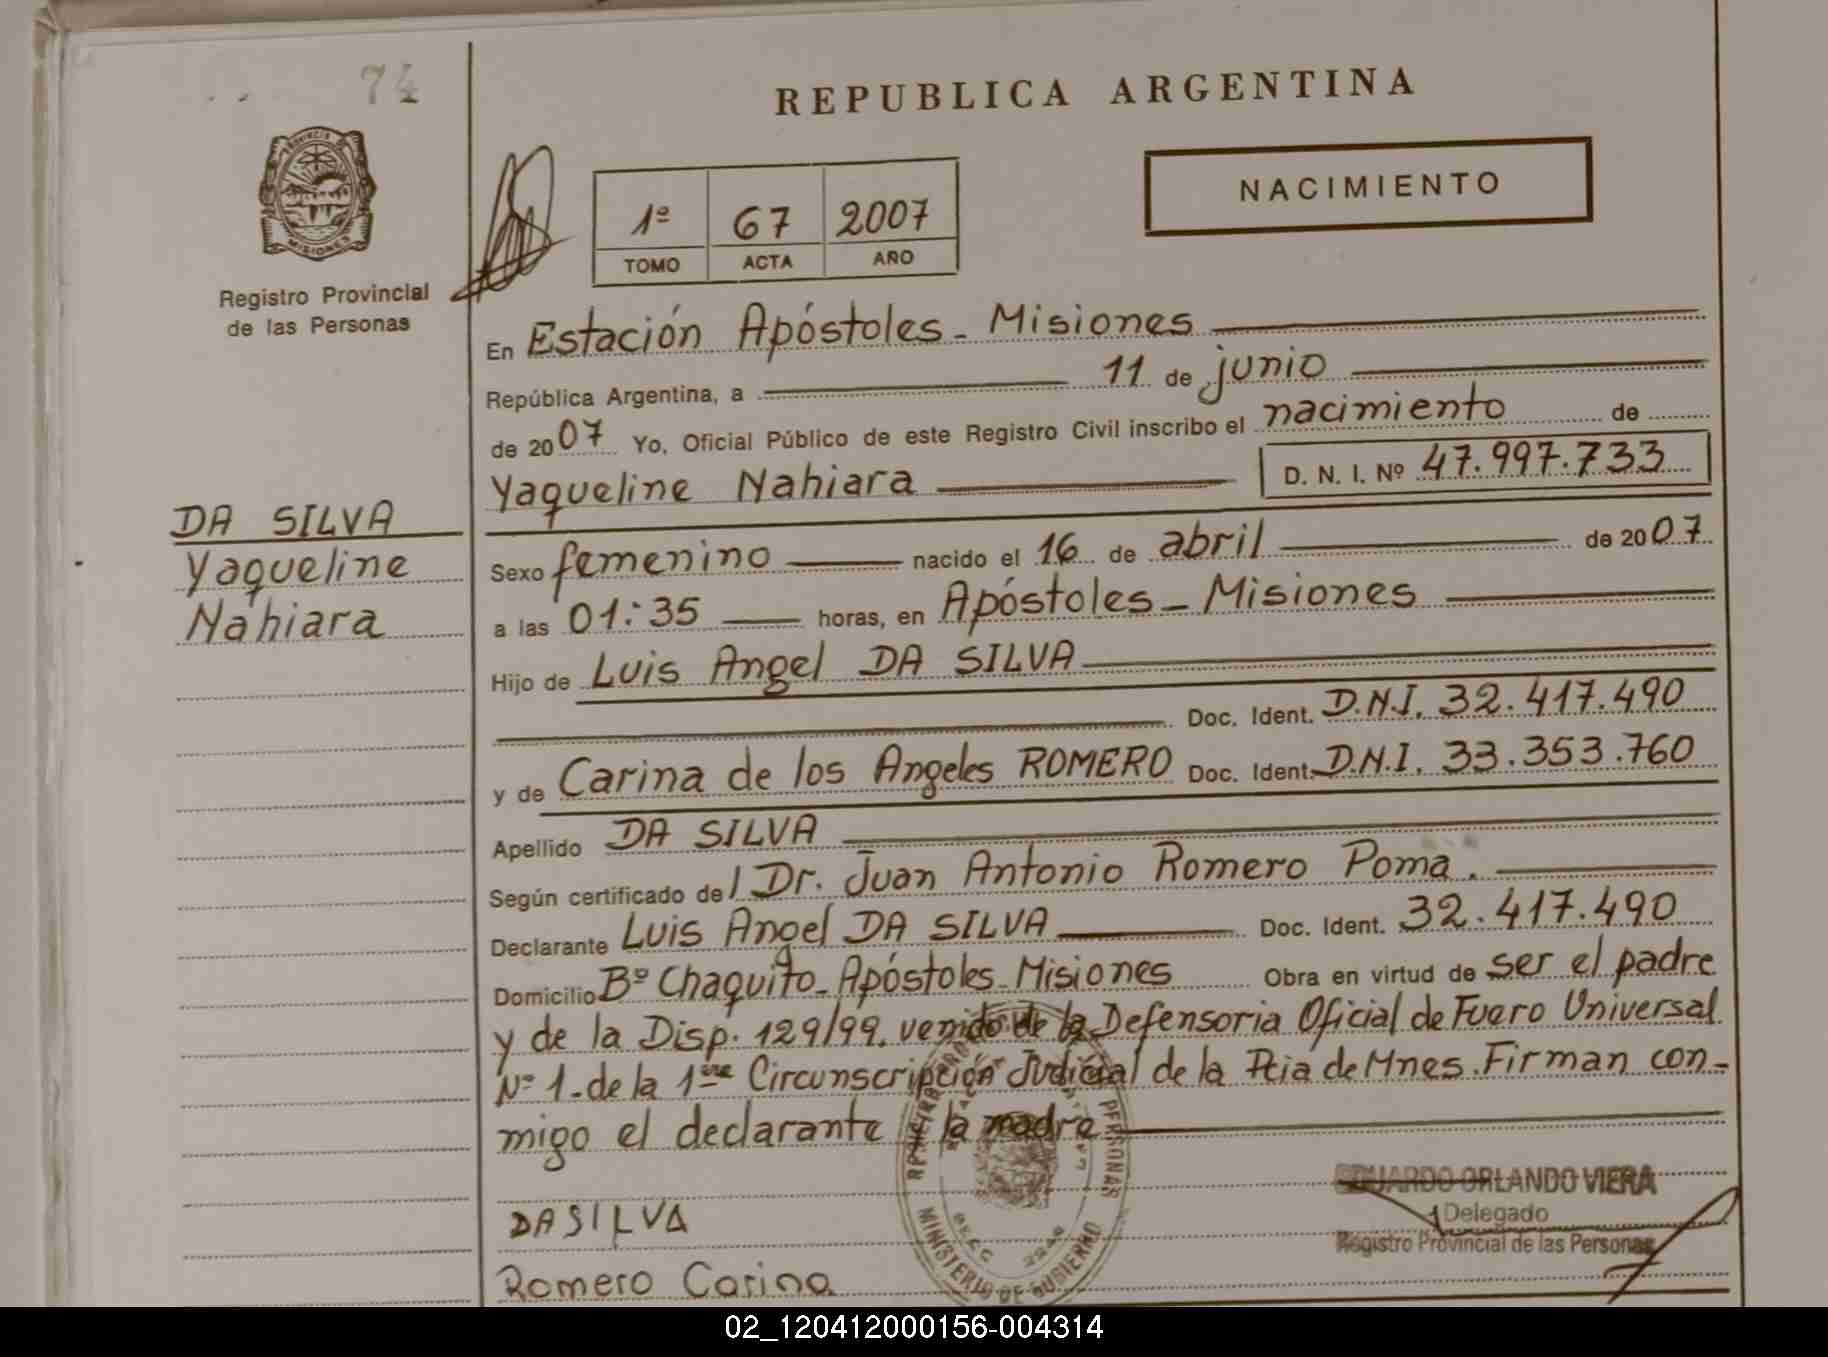 74
REPUBLICA ARGENTINA
PROVINCIA
MISIONES
Registro Provincial
de las Personas
1º 67 2007
TOMO ACTA AÑO
NACIMIENTO
En Estación Apóstoles - Misiones
República Argentina, a 11 de junio
de 2007 Yo, Oficial Público de este Registro Civil inscribo el nacimiento de
Yaqueline Nahiara D. N. I. Nº 47.997.733
DA SILVA
Yaqueline
Nahiara
Sexo femenino nacido el 16 de abril de 2007
a las 01:35 horas, en Apóstoles - Misiones
Hijo de Luis Angel DA SILVA
Doc. Ident. D.N.I. 32.417.490
y de Carina de los Angeles ROMERO Doc. Ident. D.N.I. 33.353.760
Apellido DA SILVA
Según certificado del Dr. Juan Antonio Romero Poma.
Declarante Luis Angel DA SILVA Doc. Ident. 32.417.490
Domicilio Bº Chaquito - Apóstoles - Misiones Obra en virtud de ser el padre
y de la Disp. 129/99. venido de la Defensoria Oficial de Fuero Universal
Nº 1 - de la 1ra Circunscripción Judicial de la Pcia de Mnes. Firman con-
migo el declarante y la madre
PERSONAS
MINISTERIO DE GOBIERNO
EDUARDO ORLANDO VIERA
Delegado
Registro Provincial de las Personas
DA SILVA
Romero Carina
02_120412000156-004314